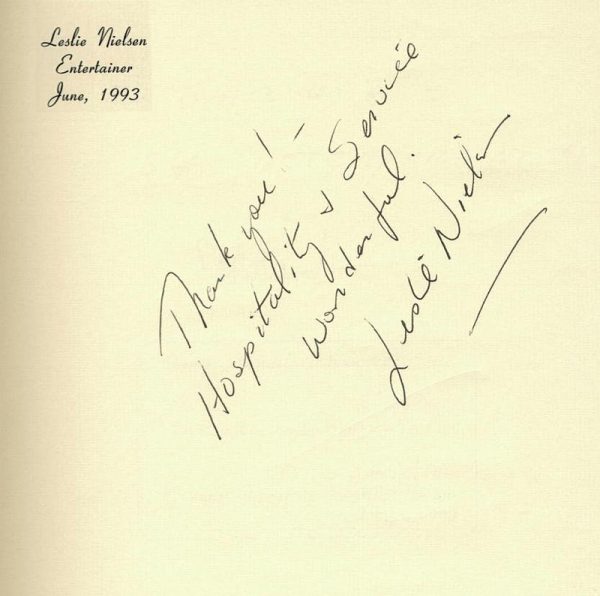 Leslie Nielsen
Entertainer
June, 1993
Thank you! –
Hospitality & Service
wonderful.
Leslie Nielsen